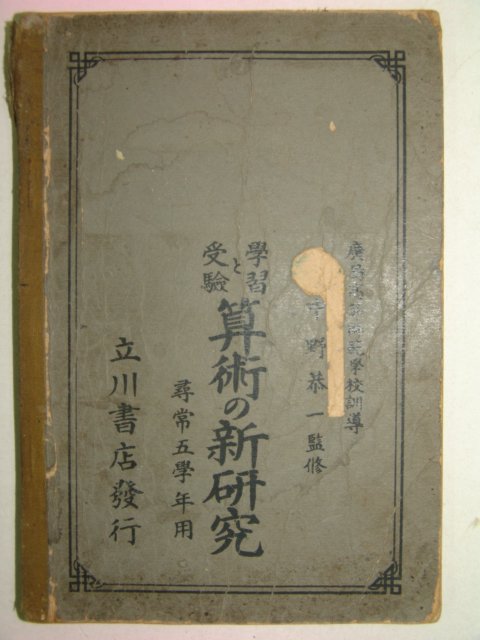 廣島高等師範學校訓導
野恭一監修
學習と受驗
算術の新研究
尋常五學年用
立川書店發行